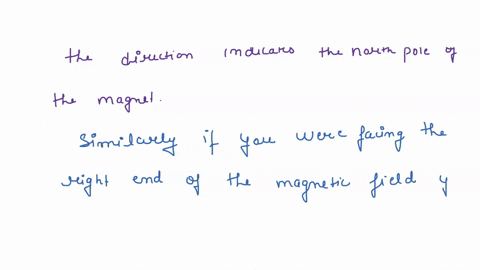 the direction indicars the north pole of
the magnet.
Similarly if you were facing the
right end of the magnetic field y